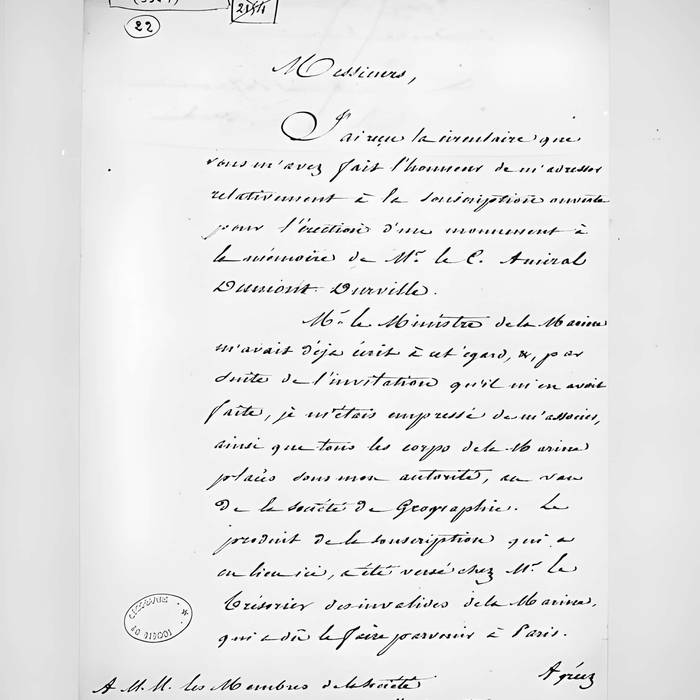 22
Messieurs,
J'ai reçu la circulaire que
vous m'avez fait l'honneur de m'adresser
relativement à la souscription ouverte
pour l'érection d'un monument à
la mémoire de Mr. le C. Amiral
Dumont Durville.
Mr. le Ministre de la Marine
m'avait déja écrit à cet égard, &, par
suite de l'invitation qu'il m'en avait
faite, je m'étais empressé de m'associer,
ainsi que tous les corps de la Marine
placés sous mon autorité, au vœu
de la société de Geographie. Le
produit de la souscription qui a
eu lieu ici, a été versé chez Mr. le
Trésorier des invalides de la Marine,
qui a dû le faire parvenir à Paris.
Agréez
A M.M. les Membres de la Société